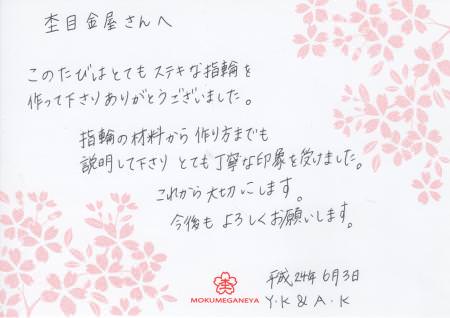 杢目金屋さんへ
このたびはとてもステキな指輪を
作って下さりありがとうございました。
指輪の材料から作り方までも
説明して下さりとても丁寧な印象を受けました。
これから大切にします。
今後もよろしくお願いします。
平成24年6月3日
Y・K & A・K
MOKUMEGANEYA